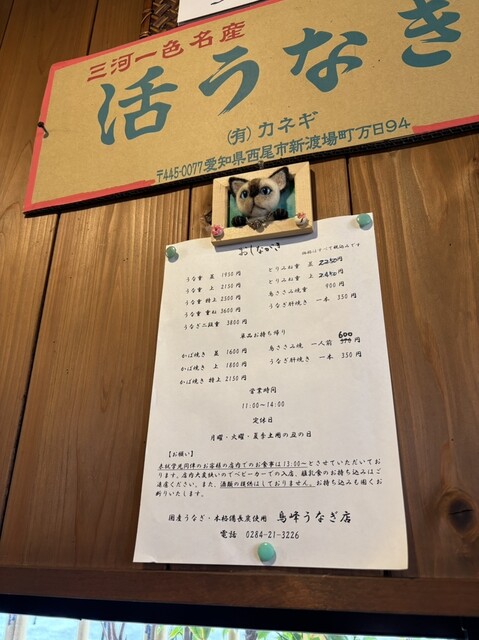 三河一色名産
活うなぎ
(有)カネギ
〒445-0077愛知県西尾市新渡場町万日94
おしながき
価格はすべて税込みです
うな重 並 1950円
うな重 上 2150円
うな重 特上 2500円
うな重 重ね 3600円
うなぎ二段重 3800円
とりふね重 並 2250円
とりふね重 上 2450円
鳥ささみ焼重 900円
うなぎ肝焼き 一本 350円
単品お持ち帰り
かば焼き 並 1600円
かば焼き 上 1800円
かば焼き 特上 2150円
鳥ささみ焼 一人前 600円
うなぎ肝焼き 一本 350円
営業時間
11:00~14:00
定休日
月曜・火曜・夏季土用の丑の日
【お願い】
未就学児同伴のお客様の店内でのお食事は13:00~とさせていただいてお
ります。店内大変狭いのでベビーカーでの入店、離乳食のお持ち込みはご
遠慮ください。また、酒類の提供はしておりません。お持ち込みも固くお
断りいたします。
国産うなぎ・本格備長炭使用 鳥峰うなぎ店
電話 0284-21-3226